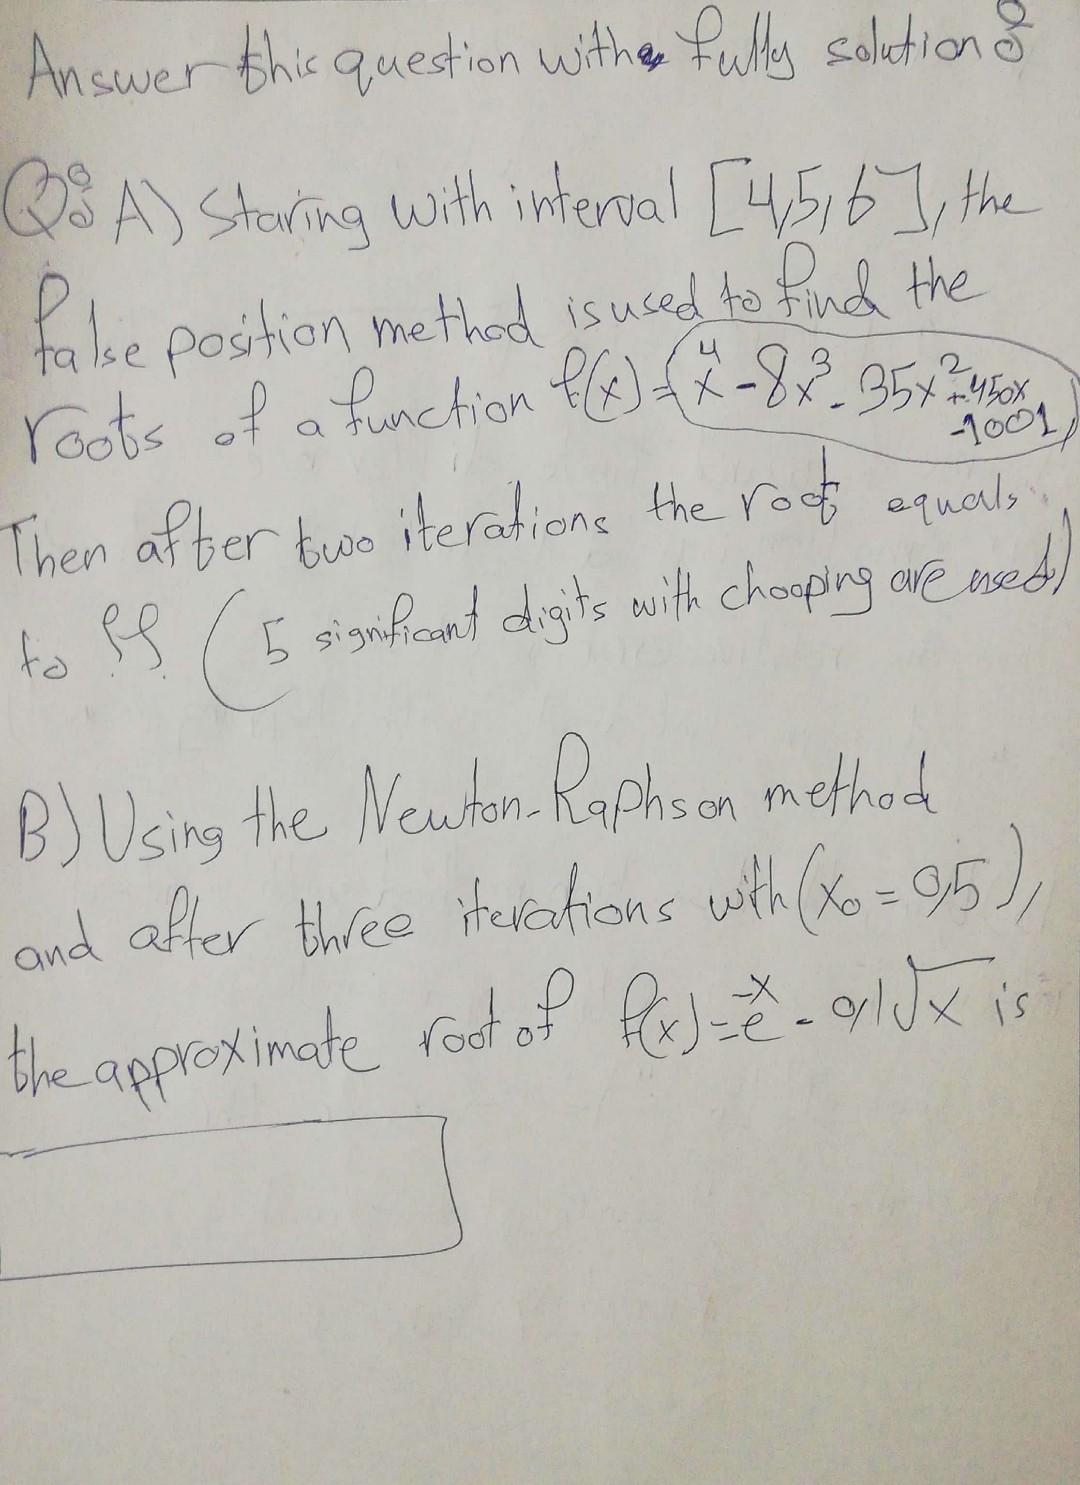 Answer this question with a fully solution:
Q: A) Staring with interval [4,5,6], the
false position method is used to find the
roots of a function f(x) = x⁴-8x³-35x²+450x
-1001,
Then after two iterations the root equals
to ?? (5 significant digits with chooping are used)
B) Using the Newton-Raphson method
and after three iterations with (x₀ = 0,5),
the approximate root of f(x) = e⁻ˣ - 0,1√x is